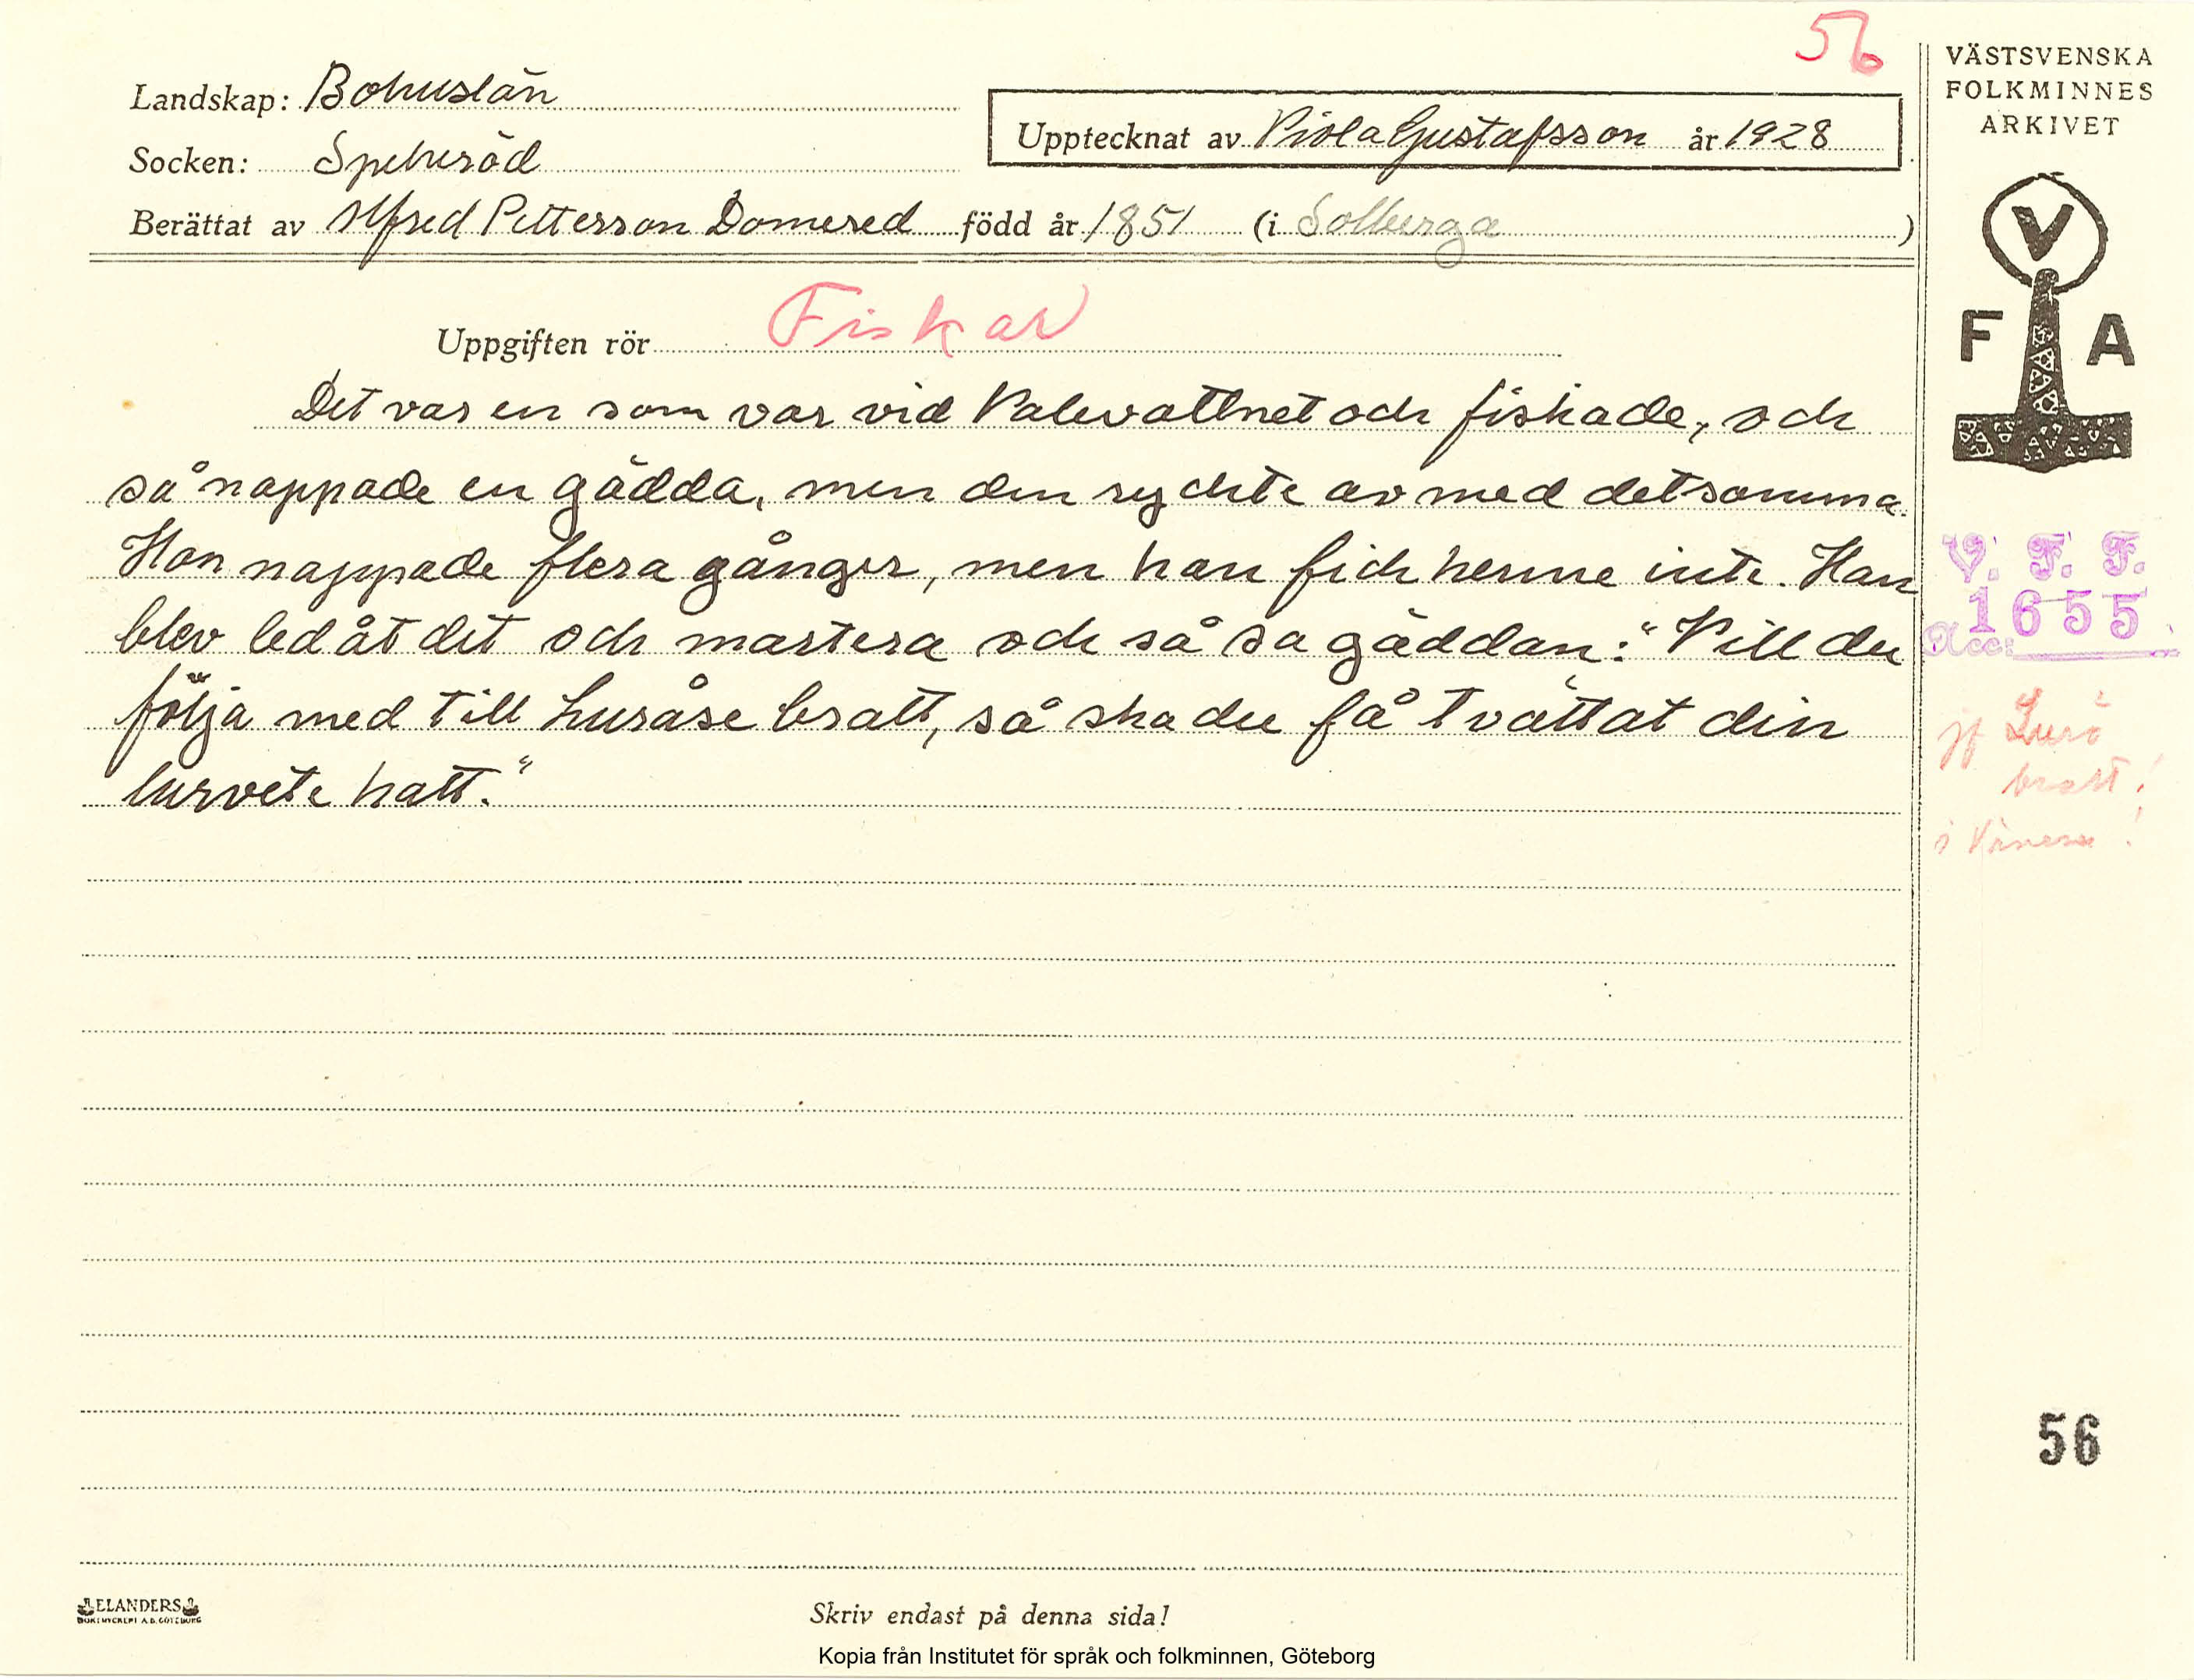 56
Landskap: Bohuslän
Socken: Spekeröd
Upptecknat av Viola Gustafsson år 1928
Berättat av Alfred Pettersson Domered född år 1851 (i Solberga)
Uppgiften rör Fiskar
Det var en som var vid Valevattnet och fiskade, och
så nappade en gädda, men den ryckte av med detsamma.
Hon nappade flera gånger, men han fick henne inte. Han
blev led åt det och martera och så sa gäddan: "Vill du
följa med till Luråse bratt, så ska du få tvättat din
lurvete hatt."
VÄSTSVENSKA
FOLKMINNES
ARKIVET
V
F A
V. F. F.
1655
Acc:
jf Lurö
bratt!
i Vänern!
56
ELANDERS
BOKTRYCKERI A.B. GÖTEBORG
Skriv endast på denna sida!
Kopia från Institutet för språk och folkminnen, Göteborg